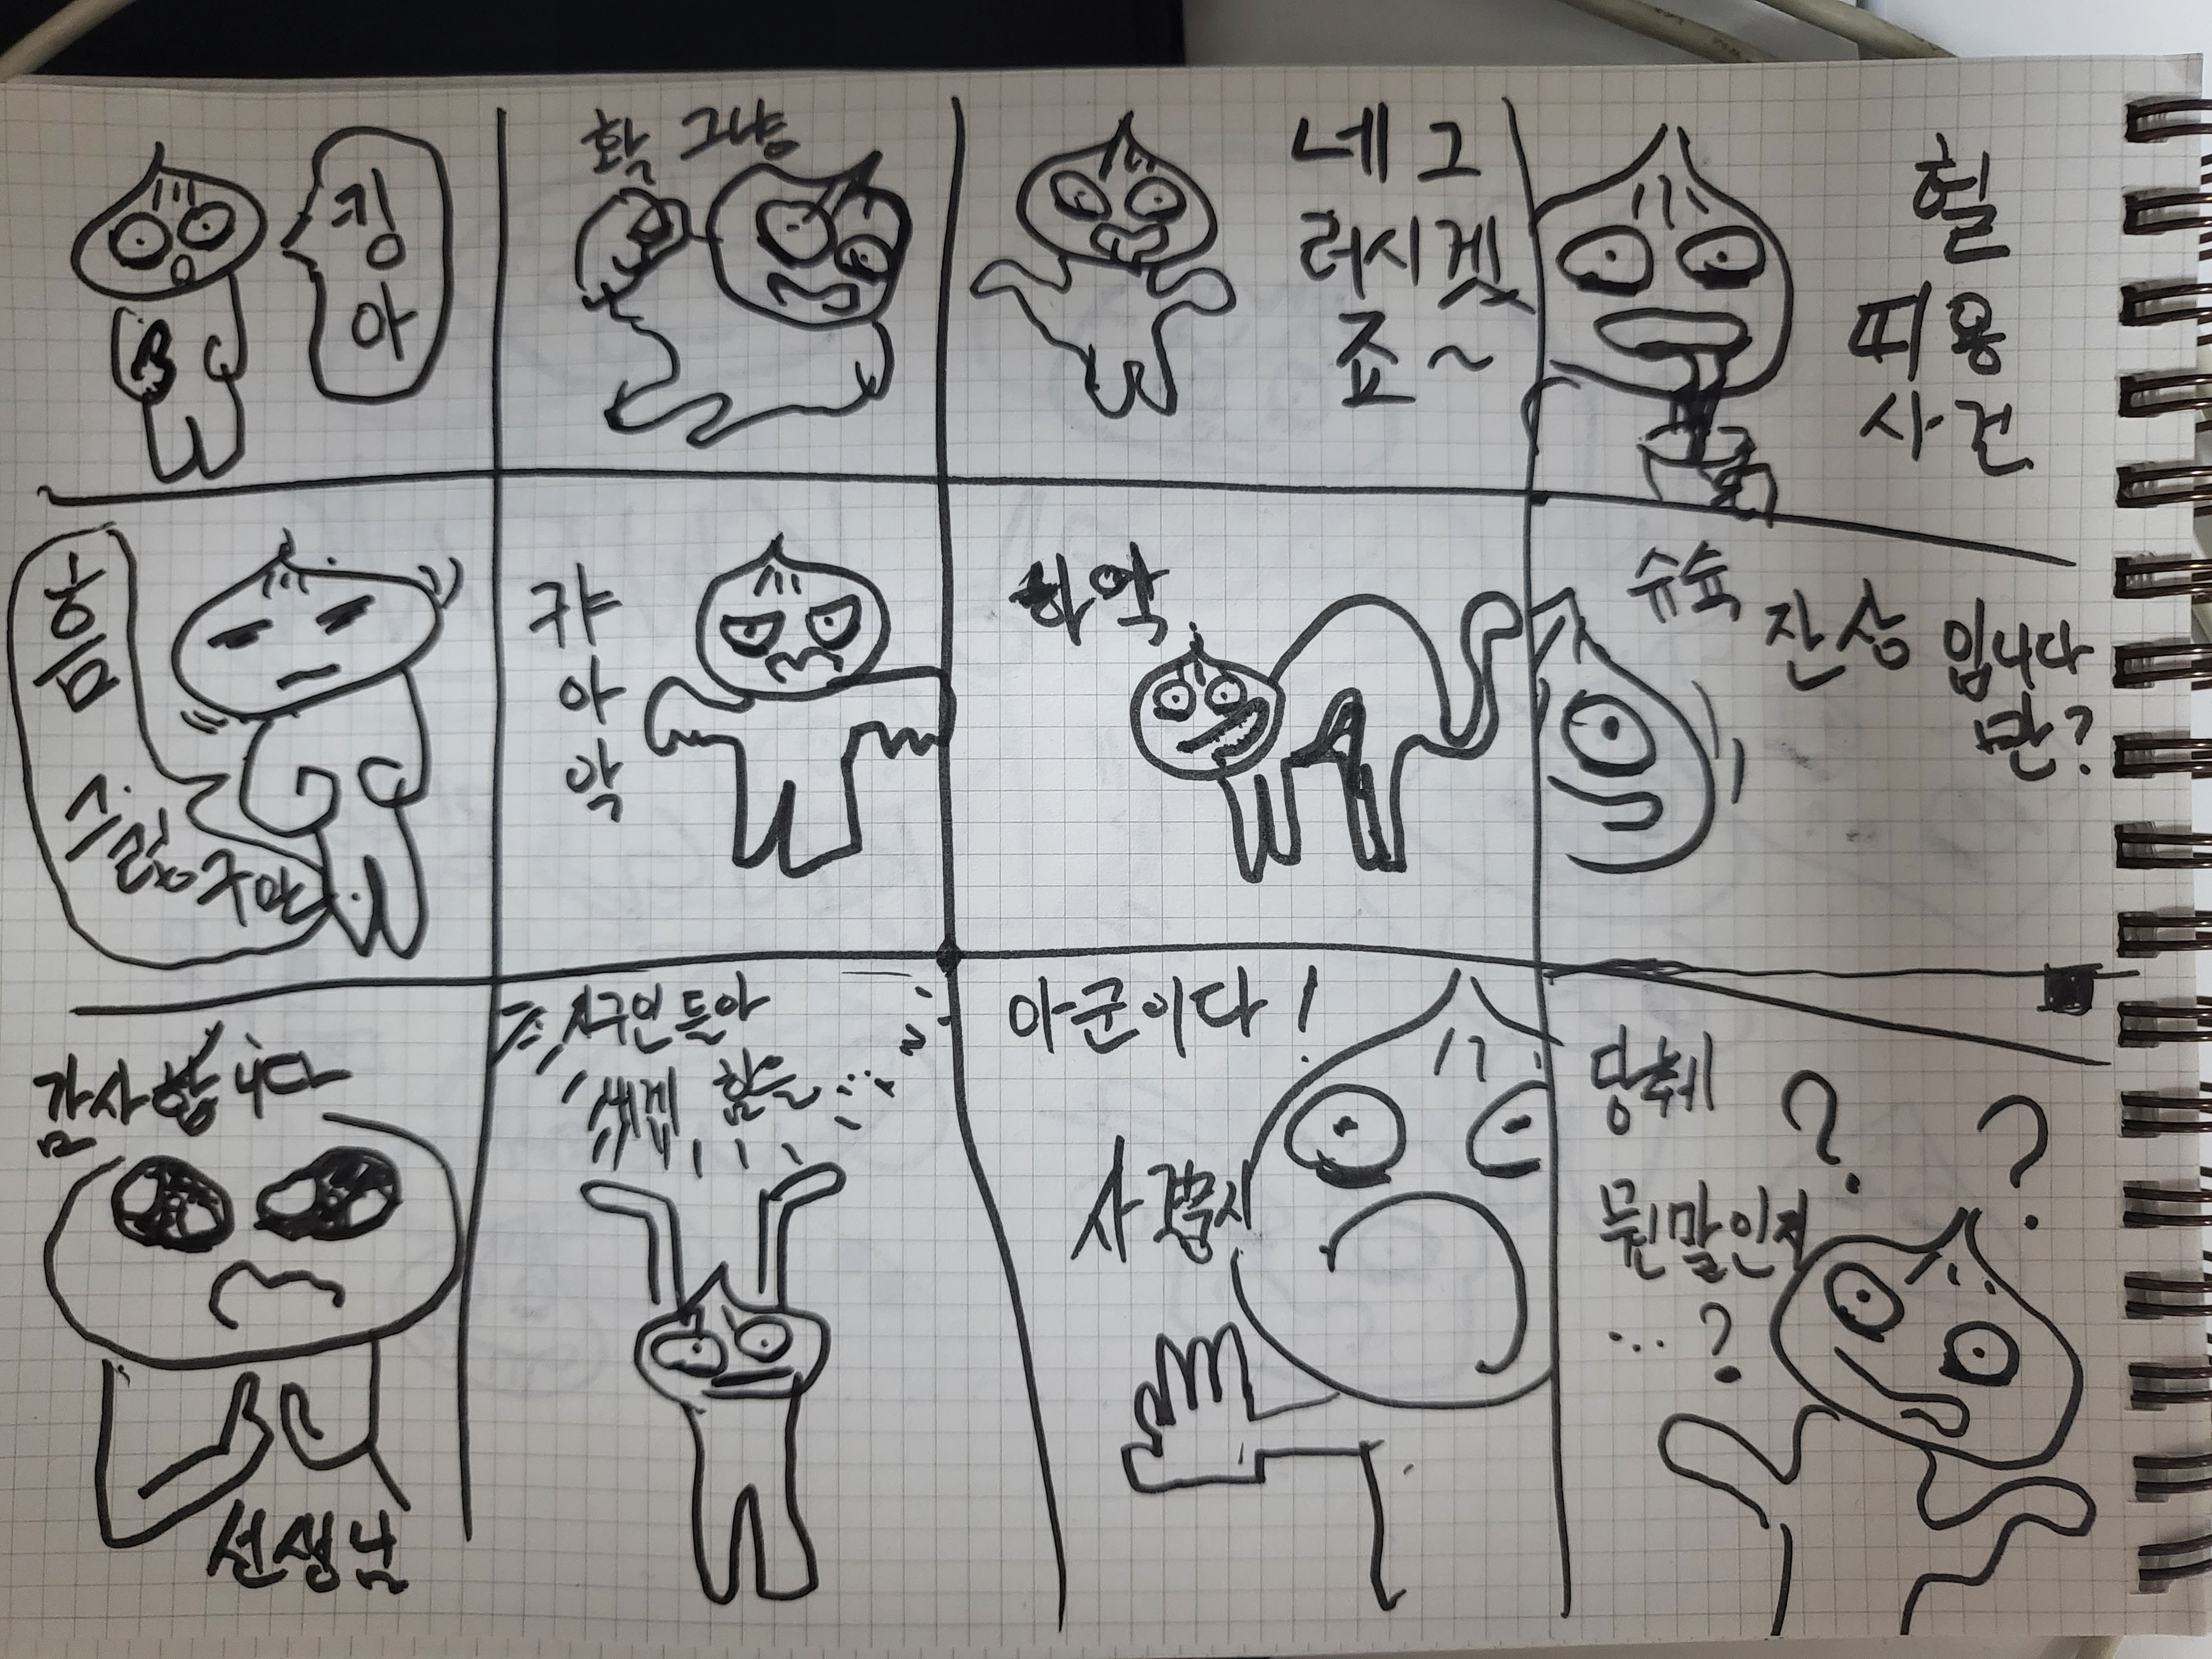 킹
아
확 그냥
네 그
러시겟
죠~
헐
피용
사건
흠
그렇구만
캬
아
악
하악
슈슉
잔상
입니다
만?
감사합니다
선생님
지구인들아
힘을
아군이다!
사격중지
당췌
뮌말인지
...?
? ?